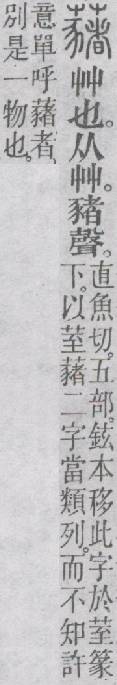 藸艸也。从艸。豬聲。
直魚切。五部。鉉本移此字於荎篆
下。以荎藸二字當類列。而不知許
意單呼藸者。
別是一物也。